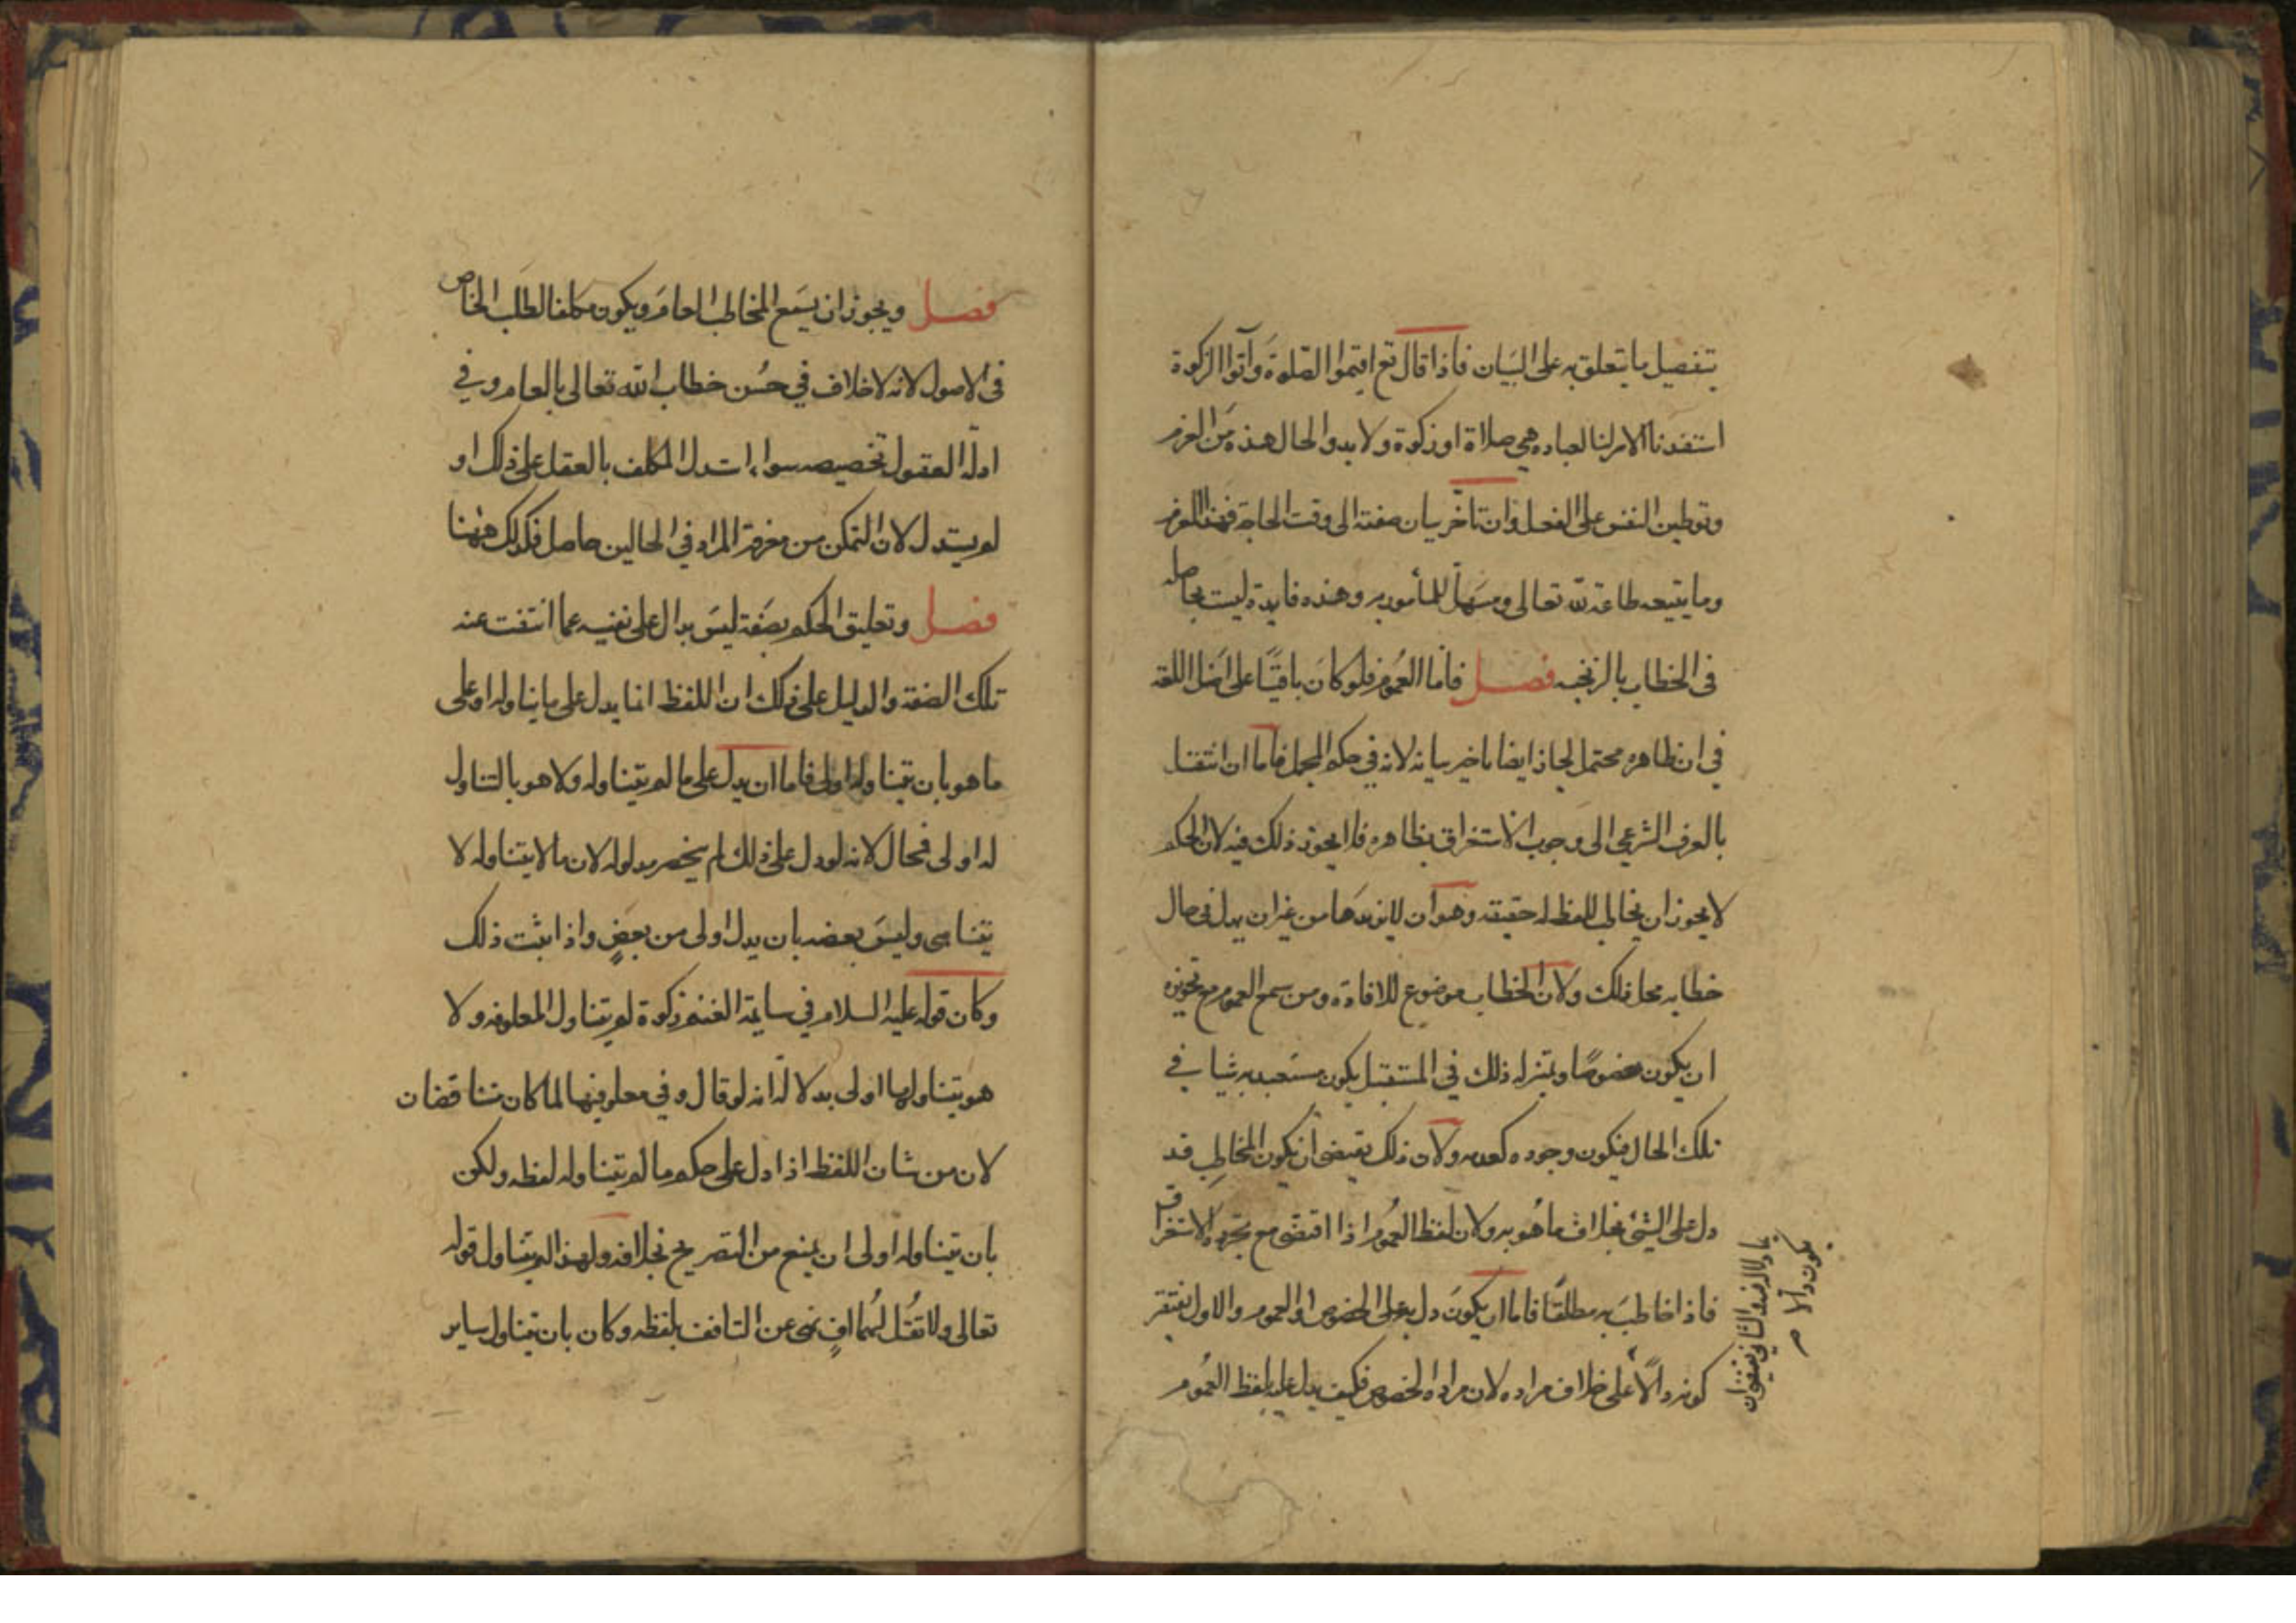 بتفصيل ما يتعلق به على البيان فاذا قال تع اقيموا الصلوة وآتوا الزكوة
استفدنا الامر لنا لعباده هي صلاة او زكوة ولا بد والحال هذه من العزم
وتوطين النفس على الفعل وان تاخر بيان صفته الى وقت الحاجة فهذا العزم
وما يتبعه طاعة لله تعالى ومسهل للمأمور به وهذه فايدة ليست بحاصله
في الخطاب بالزنجيه فصل فاما العموم فلو كان باقيا على اصل اللغة
في ان ظاهره محتمل لجاز ايضا تاخير بيانه لانه في حكم المجمل فاما ان انتقل
بالعرف الشرعي الى وجوب الاستغراق بظاهره فلا يجوز ذلك فيه لان الحكيم
لا يجوز ان يخاطب بلفظ له حقيقه وهو ان لا يريدها من غير ان يدل في حال
خطابه محل ذلك ولان الخطاب موضوع للافادة ومن سمع العموم مع تجويزه
ان يكون مخصوصا وبمنزلة ذلك في المستقبل يكون مستعبد به شيا في
تلك الحال فيكون وجوده كعدمه ولان ذلك يقتضى ان يكون المخاطب قد
دل على الشئ بخلاف ما هو به ولان لفظ العموم اذا اقتضى مع تجرده الاستغراق
فاذا خاطب به مطلقا فاما ان يكون دل به على الخصوص او العموم والاول يقتضى
كونه دالا على خلاف مراده لان مراده الخصوص فكيف يدل عليه بلفظ العموم
والثاني يقتضى ان
يكون دالا
فصل ويجوز ان يسمع المخاطب العام ويكون مكلفا لطلب الخاص
فى الاصول لانه لا خلاف في حسن خطاب الله تعالى بالعام وفي
ادلة العقول تخصيصه سواء استدل المكلف بالعقل على ذلك او
لم يستدل لان التمكن من معرفة المراد في الحالين حاصل فكذلك ههنا
فصل وتعليق الحكم بصفة ليس بدال على نفيه عما انتفت عنه
تلك الصفة والدليل على ذلك ان اللفظ انما يدل على ما يتناوله او على
ما هو بان يتناوله اولى فاما ان يدل على ما لم يتناوله ولا هو بالتناول
له اولى فمحال لانه لو دل على ذلك لم ينحصر مدلوله لان ما لا يتناوله لا
يتناهى وليس بعضه بان يدل اولى من بعض واذا ثبت ذلك
وكان قوله عليه السلام في سايمة الغنم زكوة لم يتناول المعلوفه ولا
هو يتناولها اولى بدلالة انه لو قال وفي معلوفيها لما كان متناقضان
لان من شان اللفظ اذا دل على حكم ما لم يتناوله لفظه ولكن
بان يتناوله اولى ان يمنع من التصريح بخلافه ولهذا لم يتناول قوله
تعالى ولا تقل لهما اف نهى عن التافف بلفظه وكان بان يتناول ساير